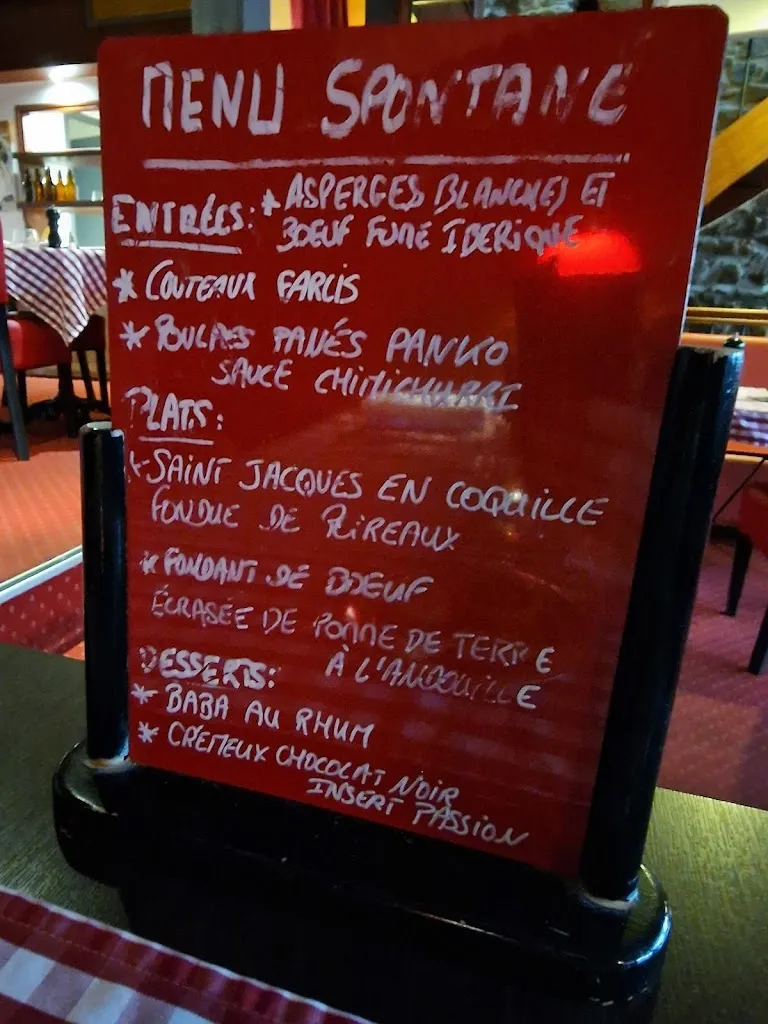 MENU SPONTANÉ
ENTRÉES: * ASPERGES BLANCHES ET
BOEUF FUMÉ IBERIQUE
* COUTEAUX FARCIS
* BULOTS PANÉS PANKO
SAUCE CHIMICHURRI
PLATS:
* SAINT JACQUES EN COQUILLE
FONDUE DE POIREAUX
* FONDANT DE BOEUF
ÉCRASÉE DE POMME DE TERRE
À L'ANDOUILLE
DESSERTS:
* BABA AU RHUM
* CRÉMEUX CHOCOLAT NOIR
INSERT PASSION